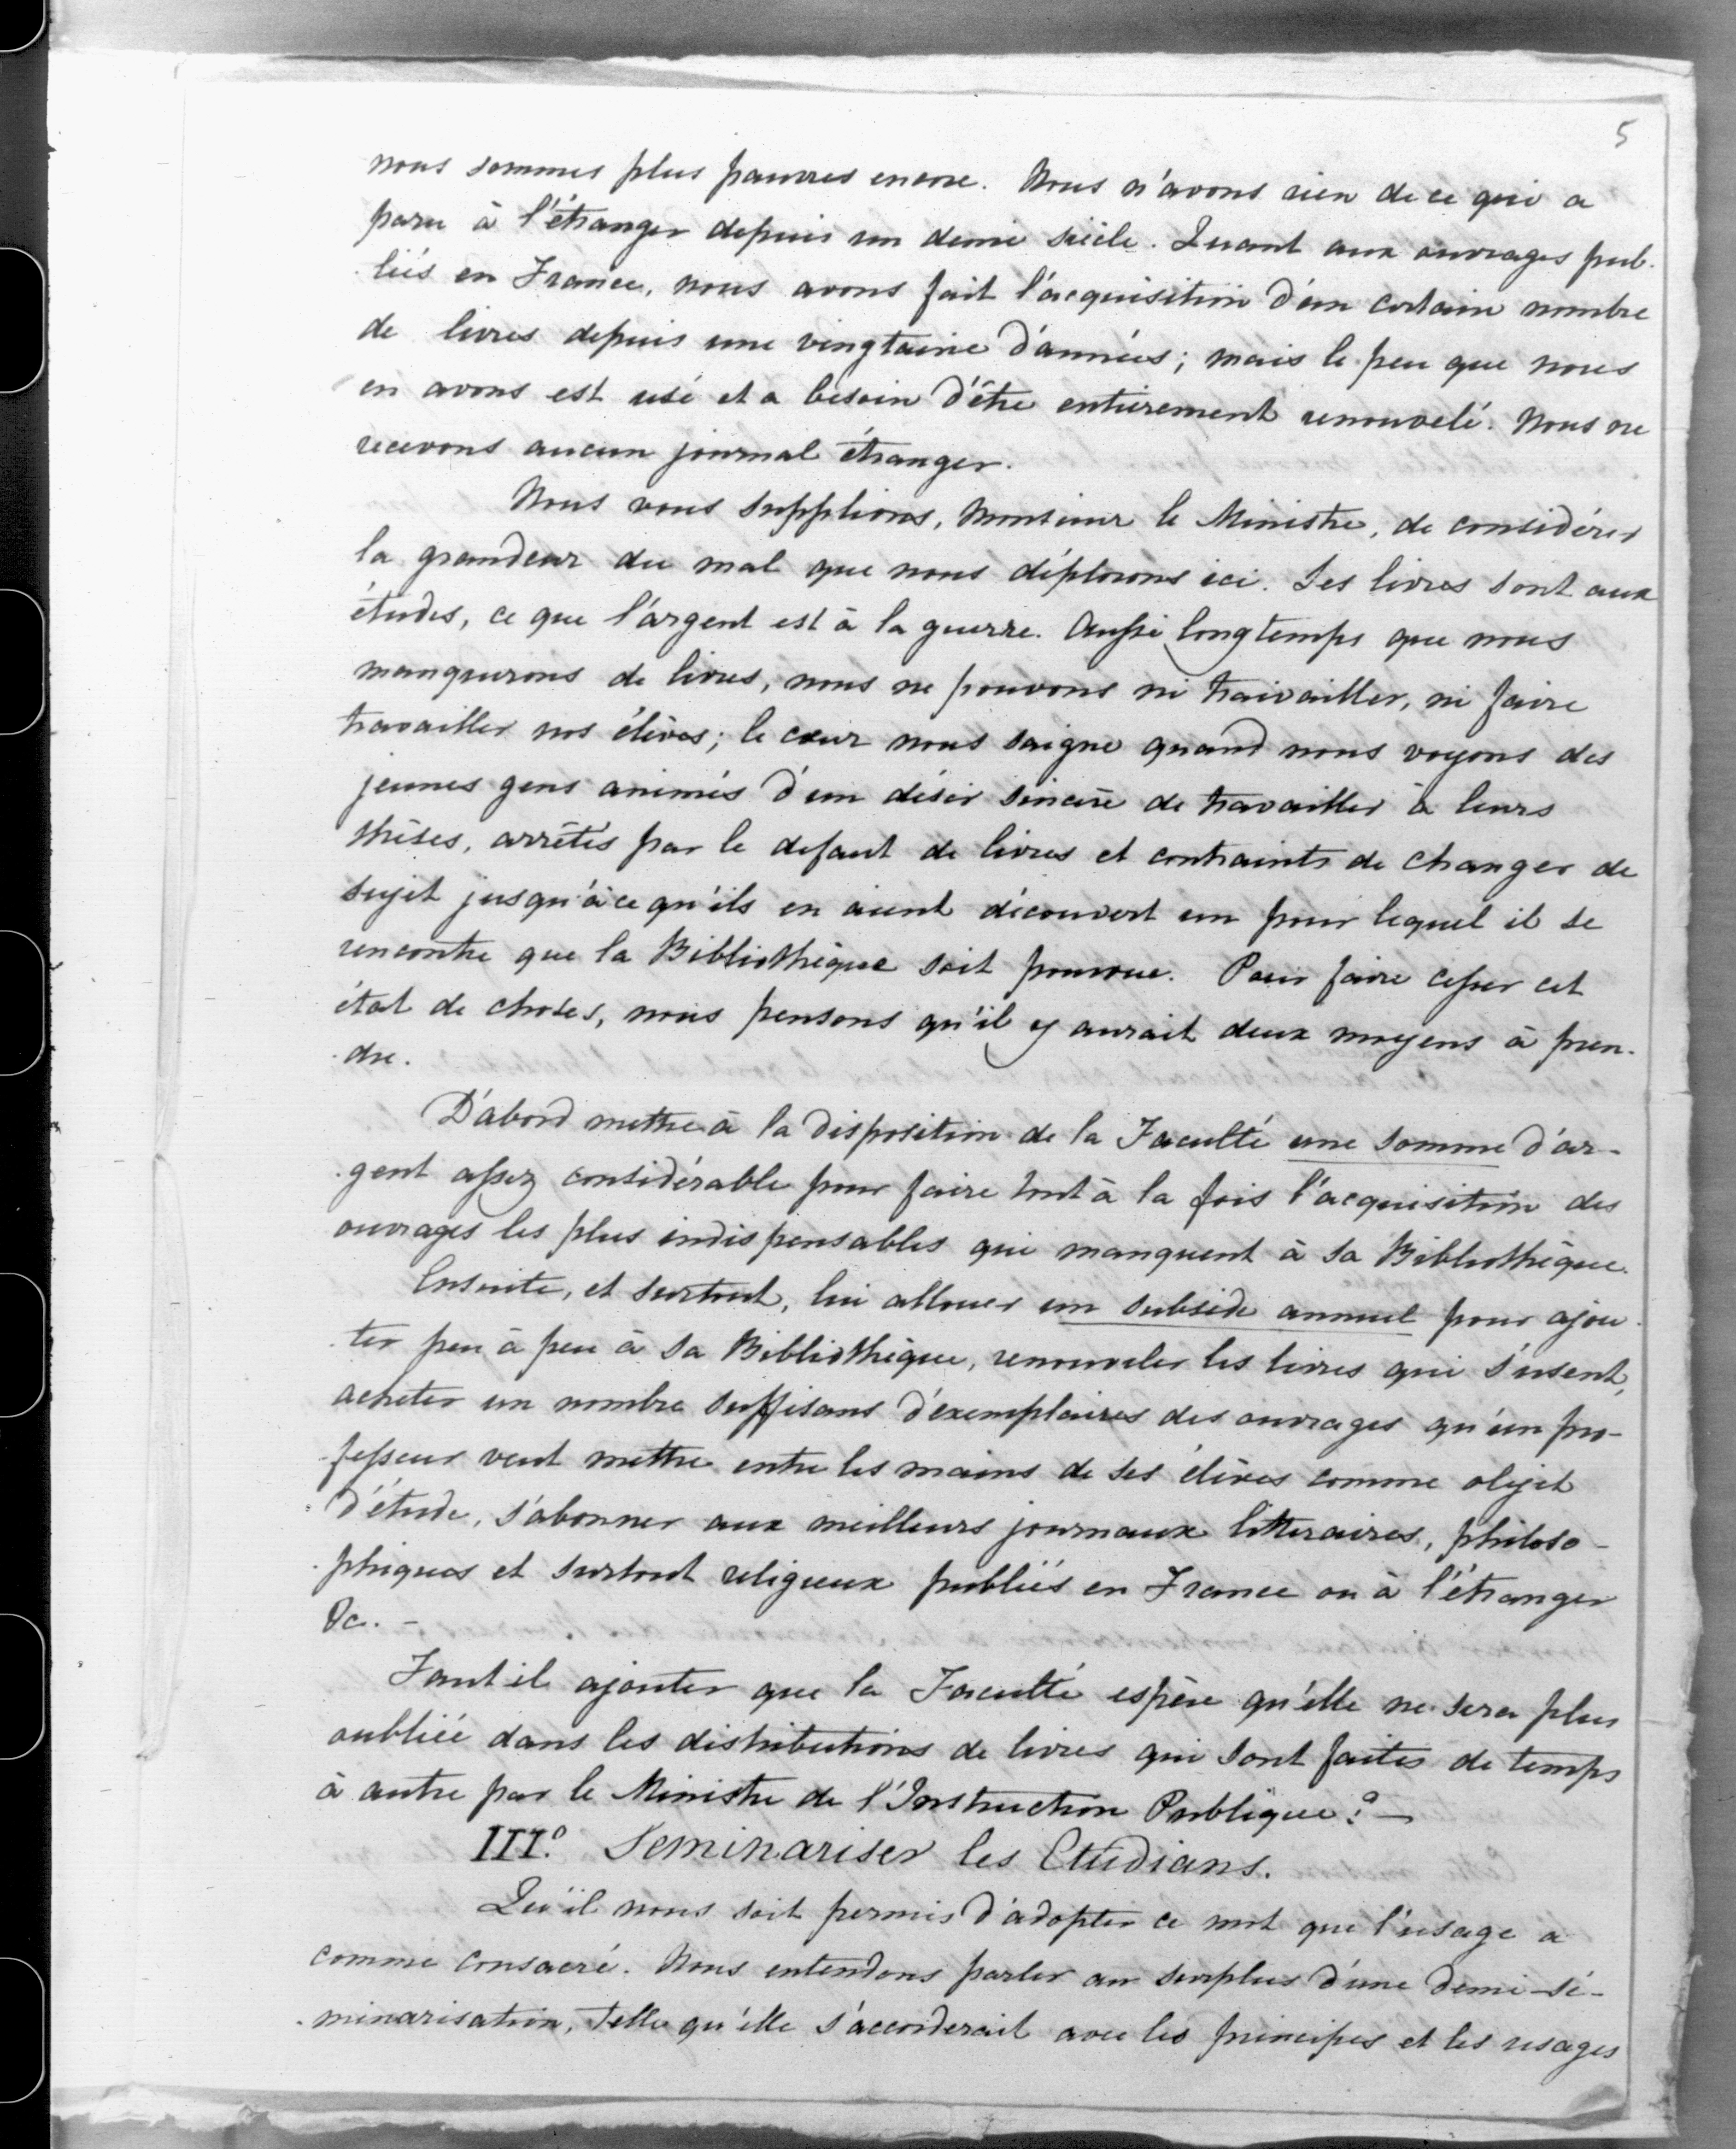 5
nous sommes plus pauvres encore. Nous n'avons rien de ce qui a
paru à l'étranger depuis un demi siècle. Quant aux ouvrages pub-
liés en France, nous avons fait l'acquisition d'un certain nombre
de livres depuis une vingtaine d'années; mais le peu que nous
en avons est usé et a besoin d'être entièrement renouvelé. Nous ne
recevons aucun journal étranger.
Nous vous supplions, Monsieur le Ministre, de considérer
la grandeur du mal que nous déplorons ici. Les livres sont aux
études, ce que l'argent est à la guerre. Aussi longtemps que nous
manquerons de livres, nous ne pouvons ni traivailler, ni faire
travailler nos élèves; le cœur nous saigne quand nous voyons des
jeunes gens animés d'un désir sincère de travailler à leurs
thèses, arrêtés par le defaut de livres et contraints de changer de
sujet jusqu'à ce qu'ils en aient découvert un pour lequel il se
rencontre que la Bibliothèque soit pourvue. Pour faire cesser cet
état de choses, nous pensons qu'il y aurait deux moyens à pren-
dre.
D'abord mettre à la disposition de la Faculté une somme d'ar-
gent assez considérable pour faire tout à la fois l'acquisition des
ouvrages les plus indispensables qui manquent à sa Bibliothèque.
Ensuite, et surtout, lui allouer un subside annuel pour ajou-
ter peu à peu à sa Bibliothèque, renouveler les livres qui s'usent,
acheter un nombre suffisans d'exemplaires des ouvrages qu'un pro-
fesseur veut mettre entre les mains de ses élèves comme objet
d'étude, s'abonner aux meilleurs journaux litteraires, philoso-
phiques et surtout religieux publiés en France ou à l'étranger
&c. -
Faut il ajouter que la Faculté espère qu'elle ne sera plus
oubliée dans les distributions de livres qui sont faites de temps
à autre par le Ministre de l'Instruction Publique? —
III.° Seminariser les Etudians.
Qu'il nous soit permis d'adopter ce mot que l'usage a
comme consacré. Nous entendons parler au surplus d'une demi-sé-
minarisation, telle qu'elle s'accorderait avec les principes et les usages